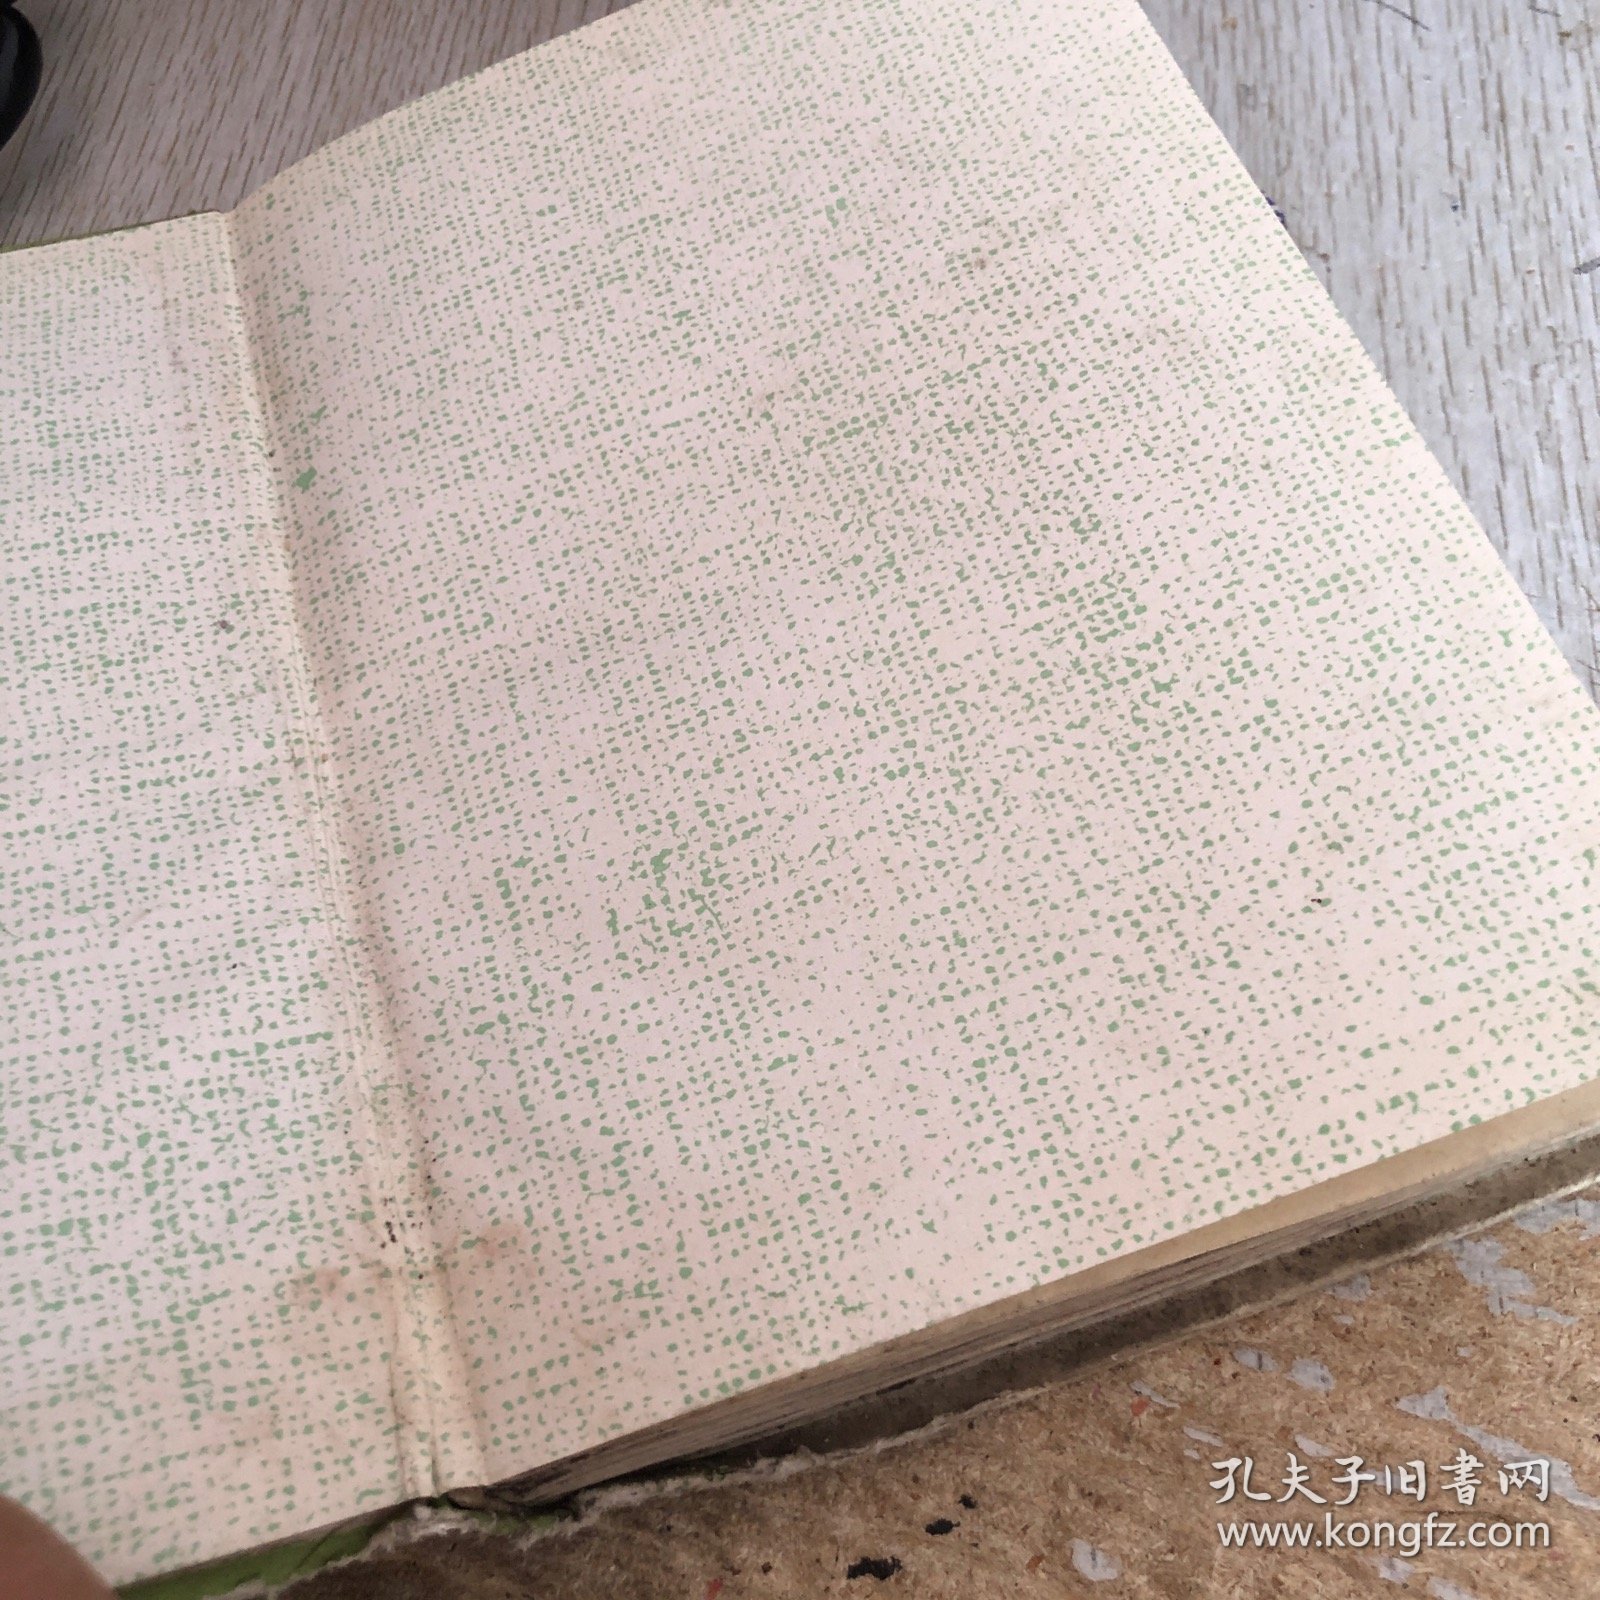 孔夫子旧书网
www.kongfz.com